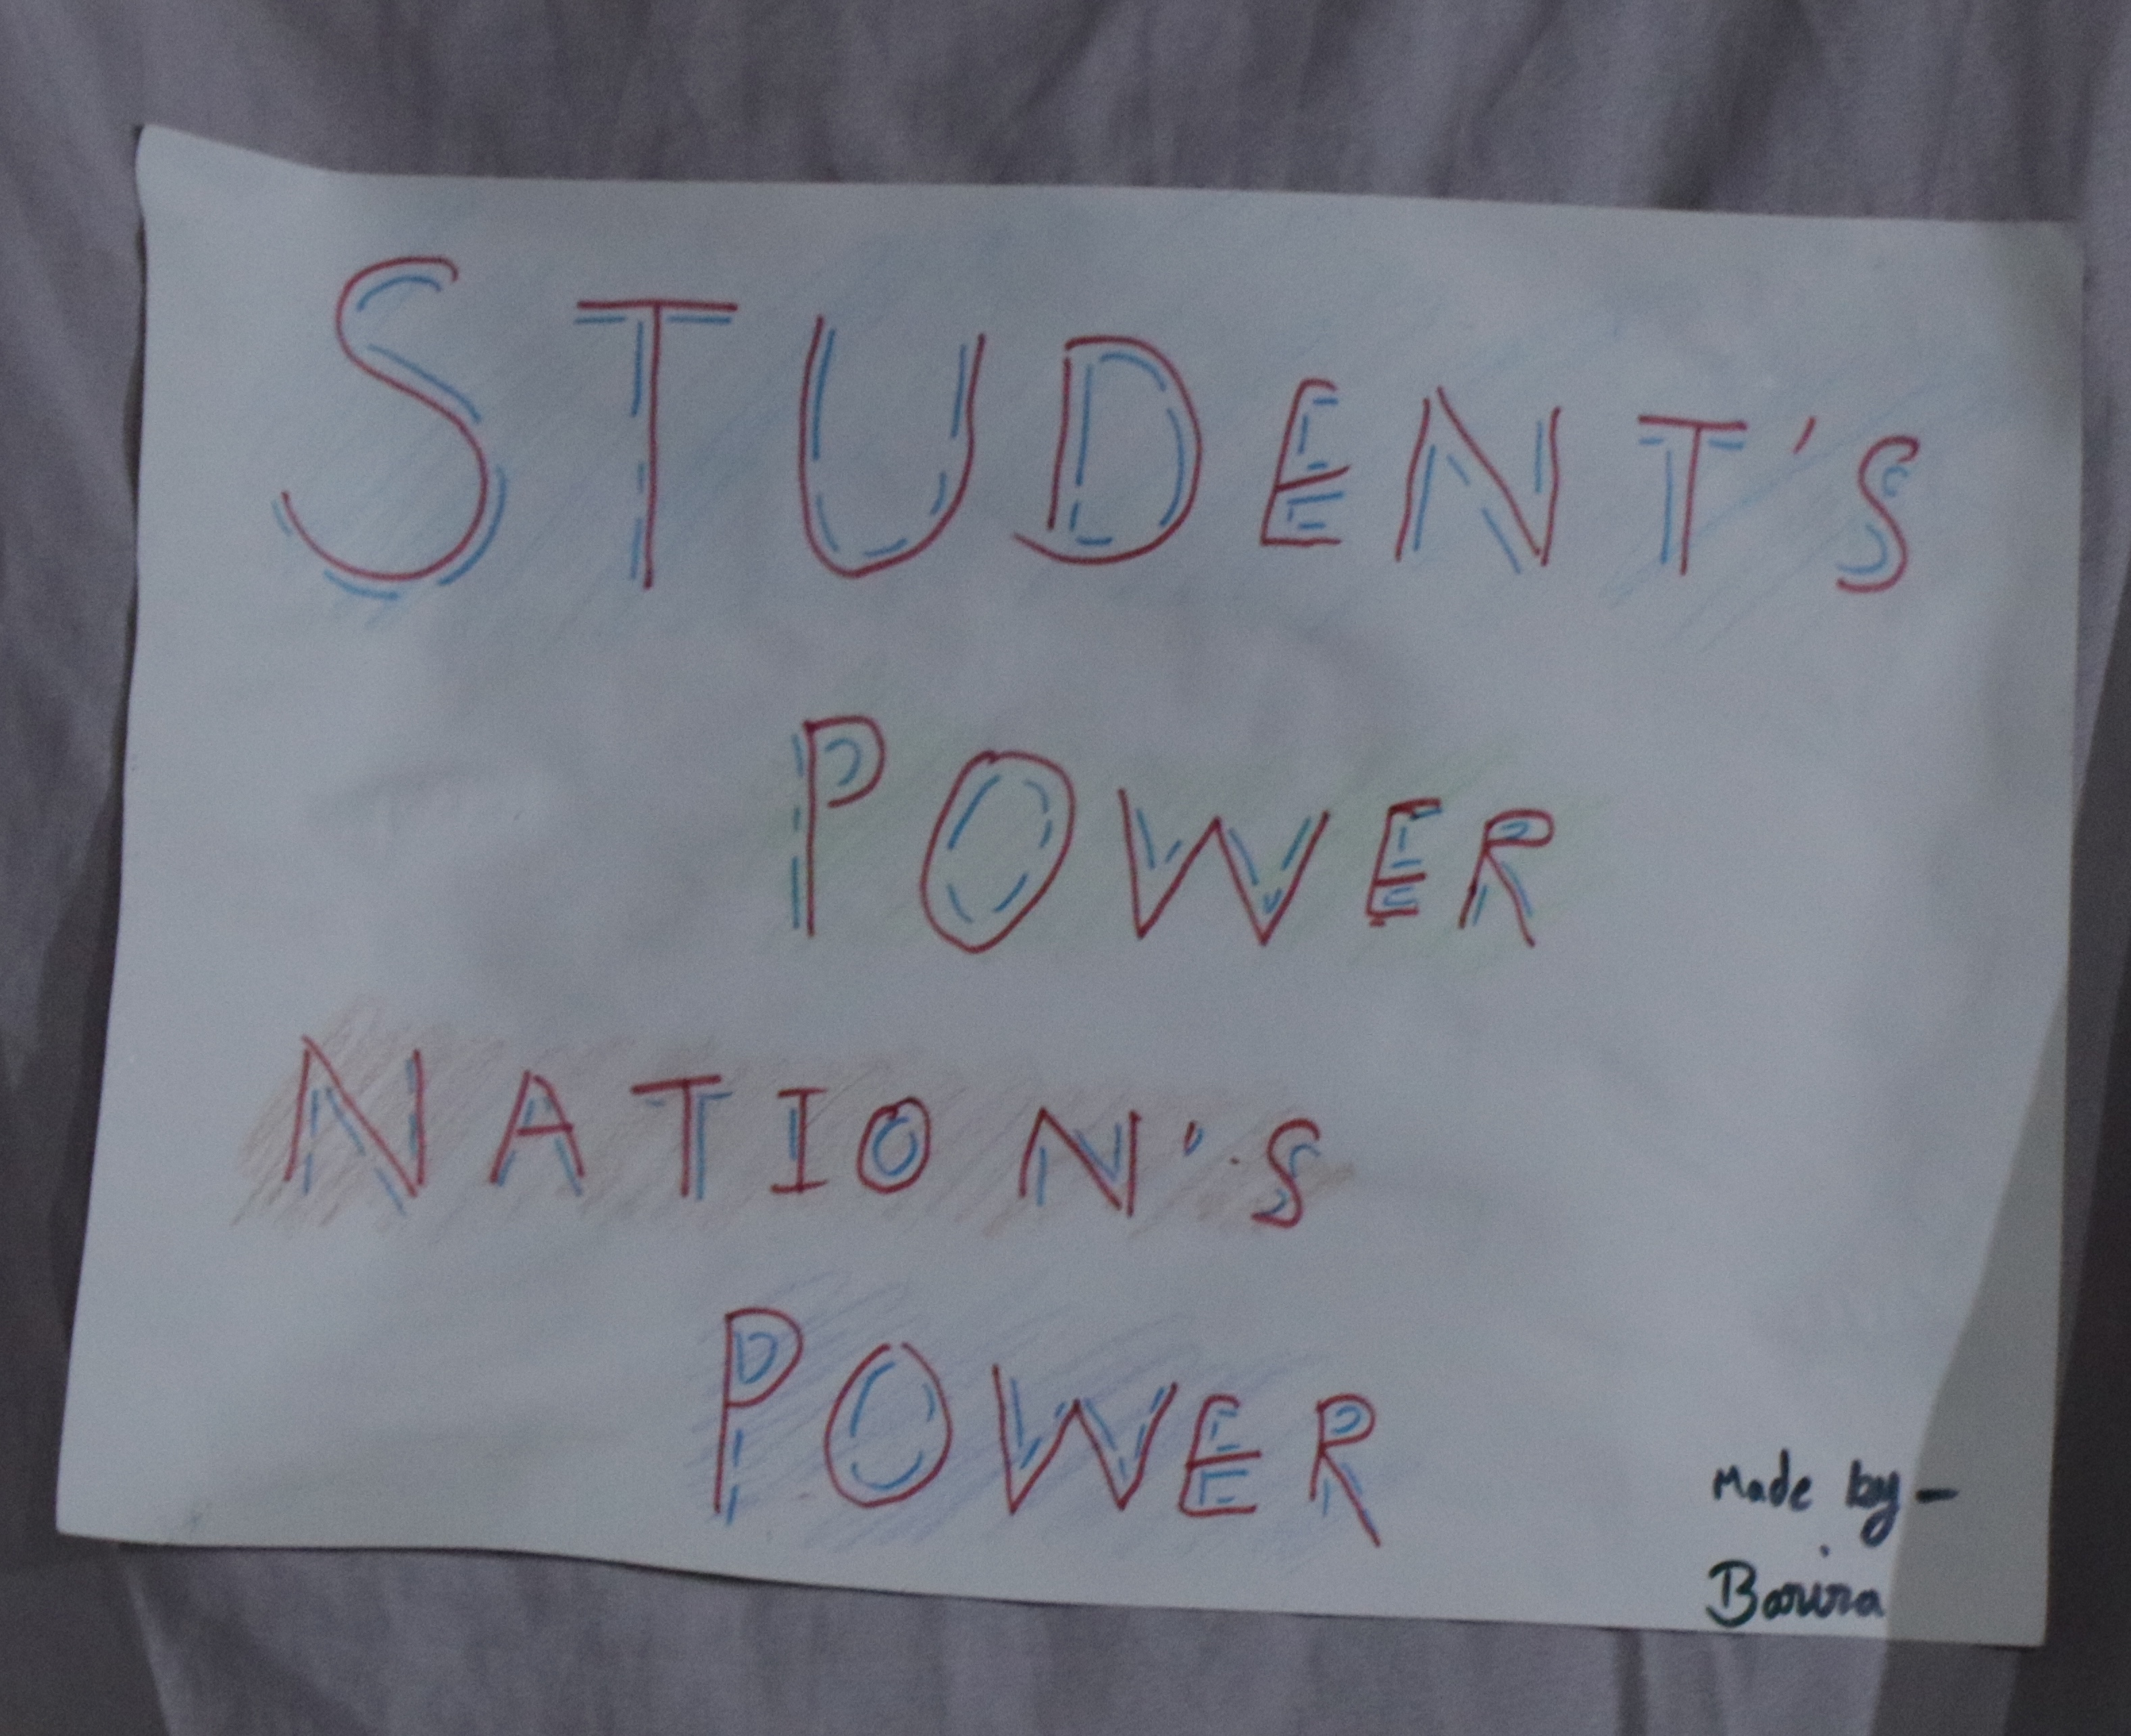 STUDENT'S
POWER
NATION'S
POWER
Made by -
Barira